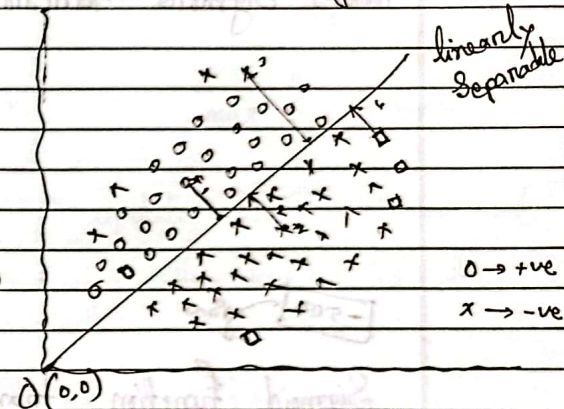 linearly
Separable
3
4
1
2
O → +ve
x → -ve
O (0,0)